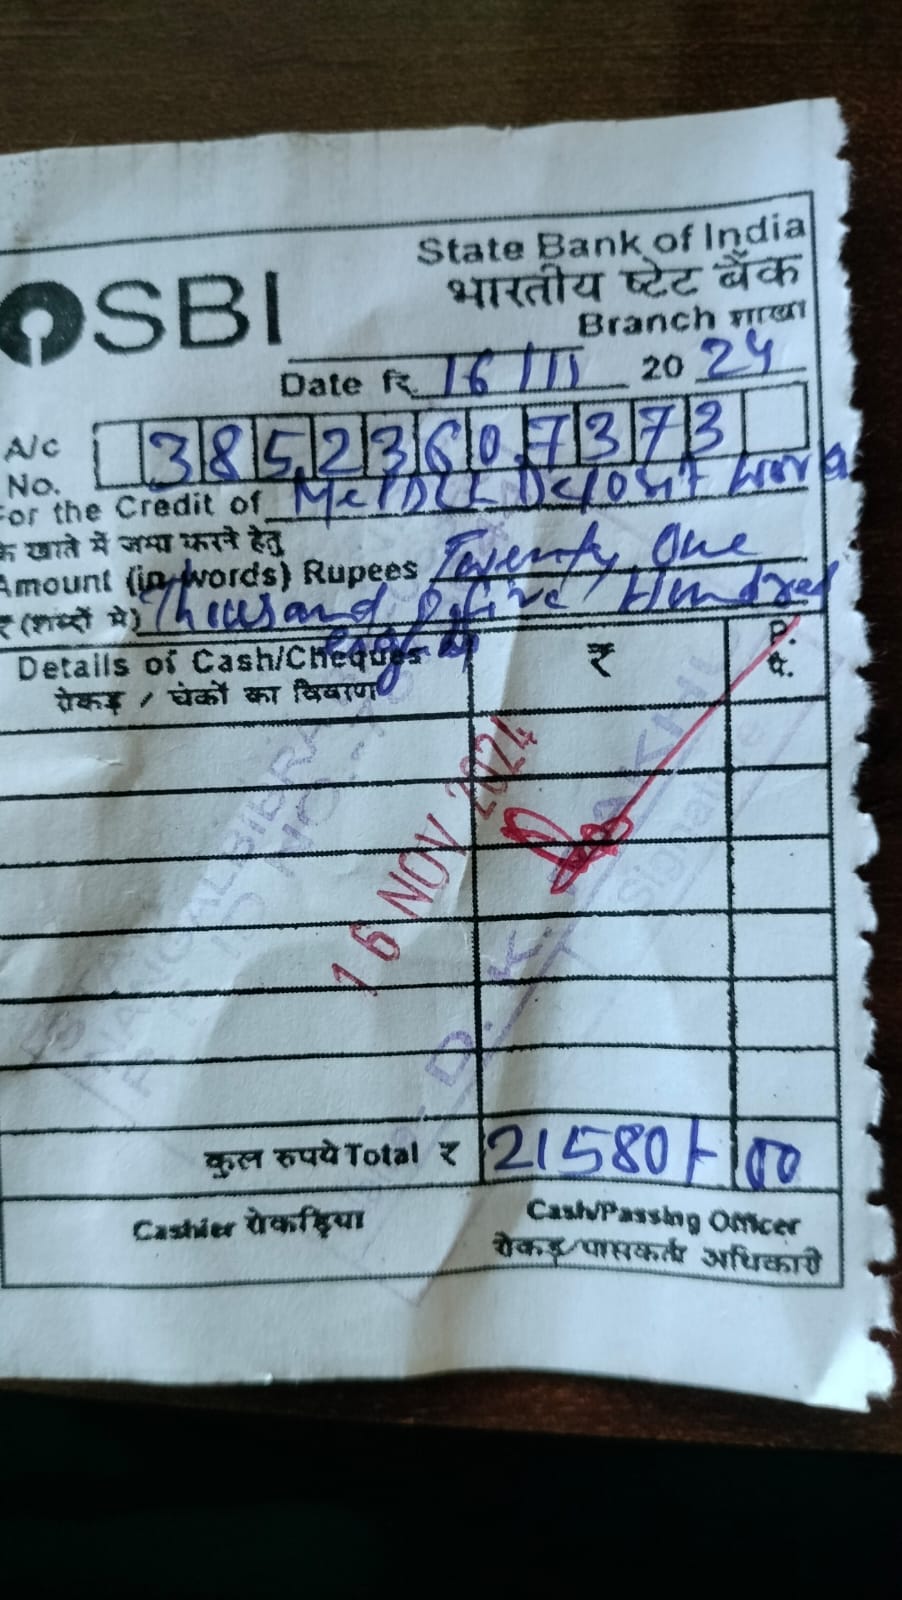 SBI
State Bank of India
भारतीय स्टेट बैंक
Branch शाखा
Date दि. 16/11 2024
A/c No. 38523607373
For the Credit of Deposit
के खाते में जमा करने हेतु
Amount (in words) Rupees Twenty One
₹ (शब्दों में) Thousand Five Hundred
Details of Cash/Cheques ₹ P.
रोकड़ / चेकों का विवरण पै.
16 NOV 2024
D. K.
Signature
कुल रुपये Total ₹ 21580/- 00
Cashier रोकड़िया
Cash/Passing Officer
रोकड़/पासकर्ता अधिकारी